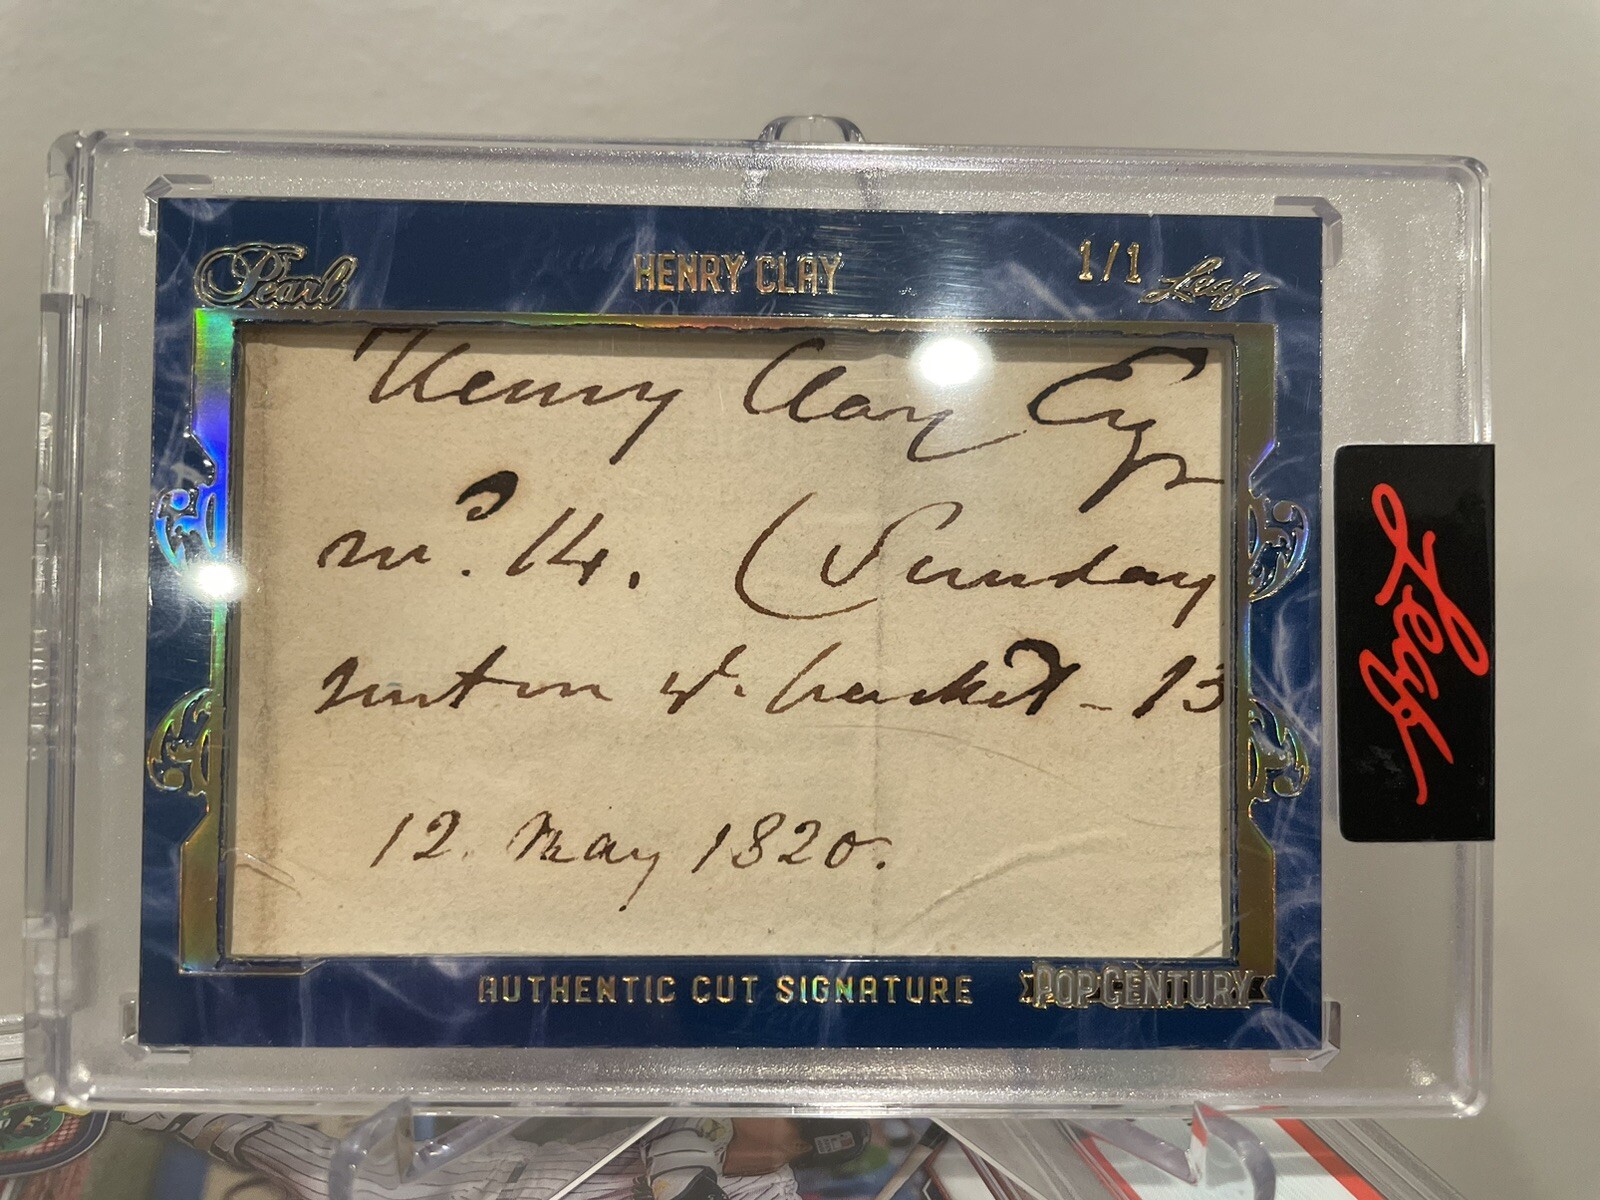 Pearl
HENRY CLAY
1/1
Leaf
Henry Clay Esqr
No. 14. (Sunday
12. May 1820.
AUTHENTIC CUT SIGNATURE
POP CENTURY
Leaf